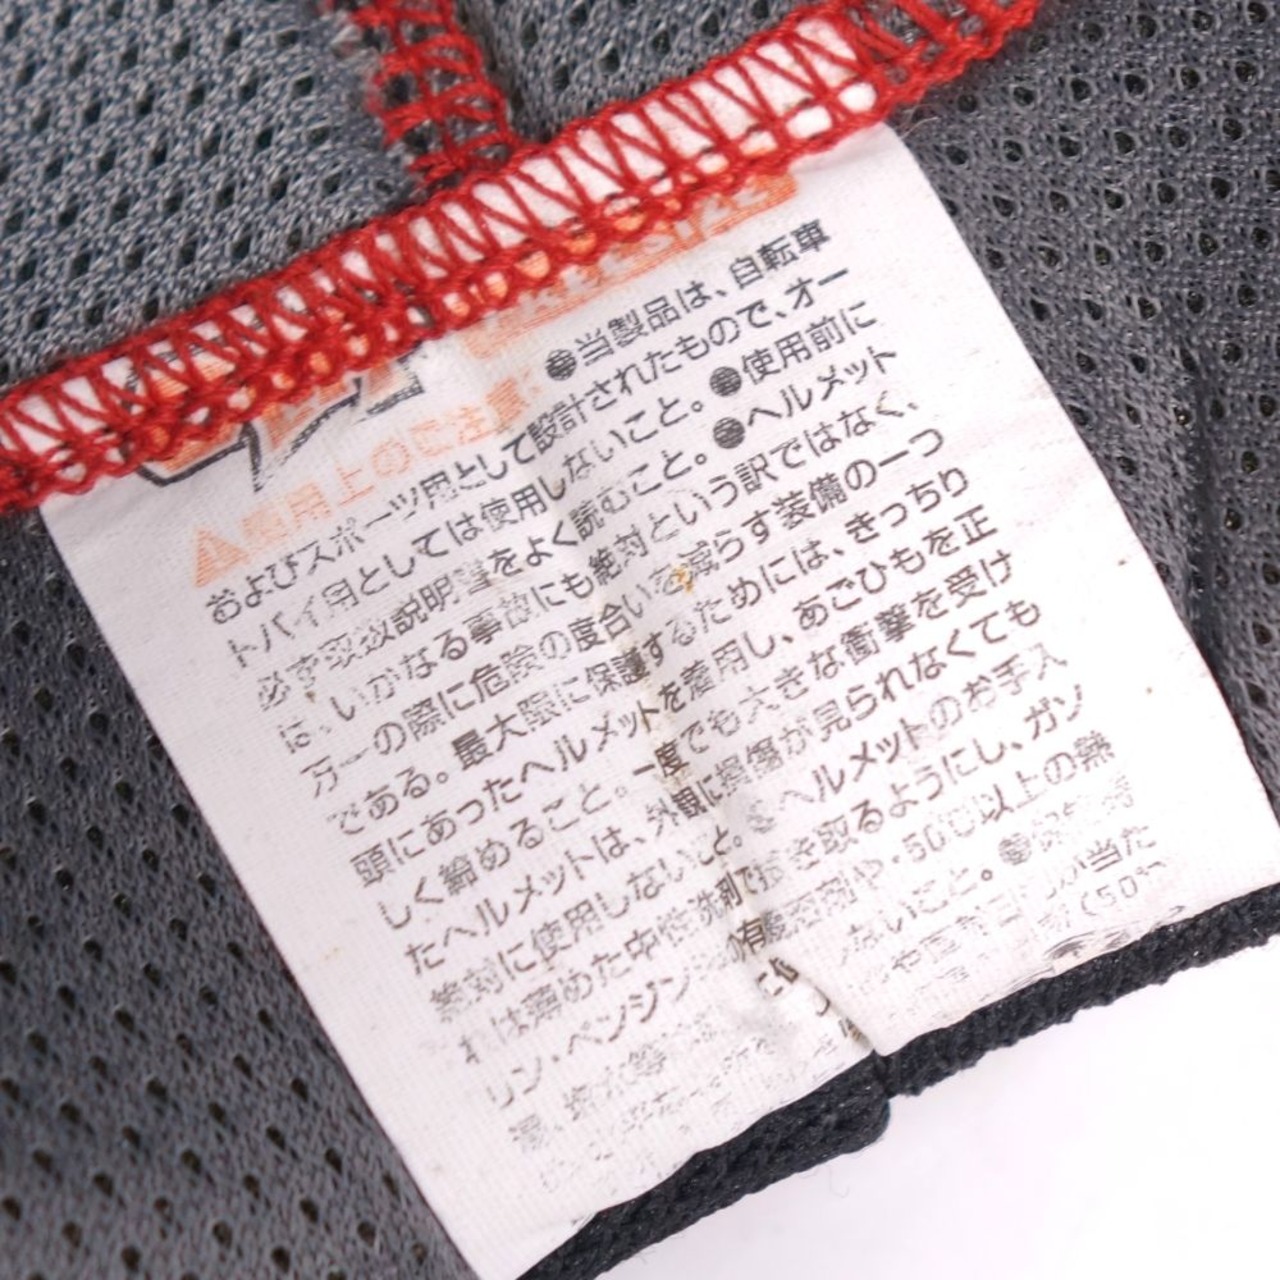 使用上のご注意
●当製品は、自転車
およびスポーツ用として設計されたもので、オー
トバイ用としては使用しないこと。●使用前に
必ず取扱説明書をよく読むこと。●ヘルメット
は、いかなる事故にも絶対という訳ではなく、
万一の際に危険の度合いを減らす装備の一つ
である。最大限に保護するためには、きっちり
頭にあったヘルメットを着用し、あごひもを正
しく締めること。一度でも大きな衝撃を受け
たヘルメットは、外観に損傷が見られなくても
絶対に使用しないこと。●ヘルメットのお手入
れは薄めた中性洗剤で拭き取るようにし、ガソ
リン・ベンジン等の有機溶剤や・50℃以上の熱
ないこと。●
が当た
(50℃